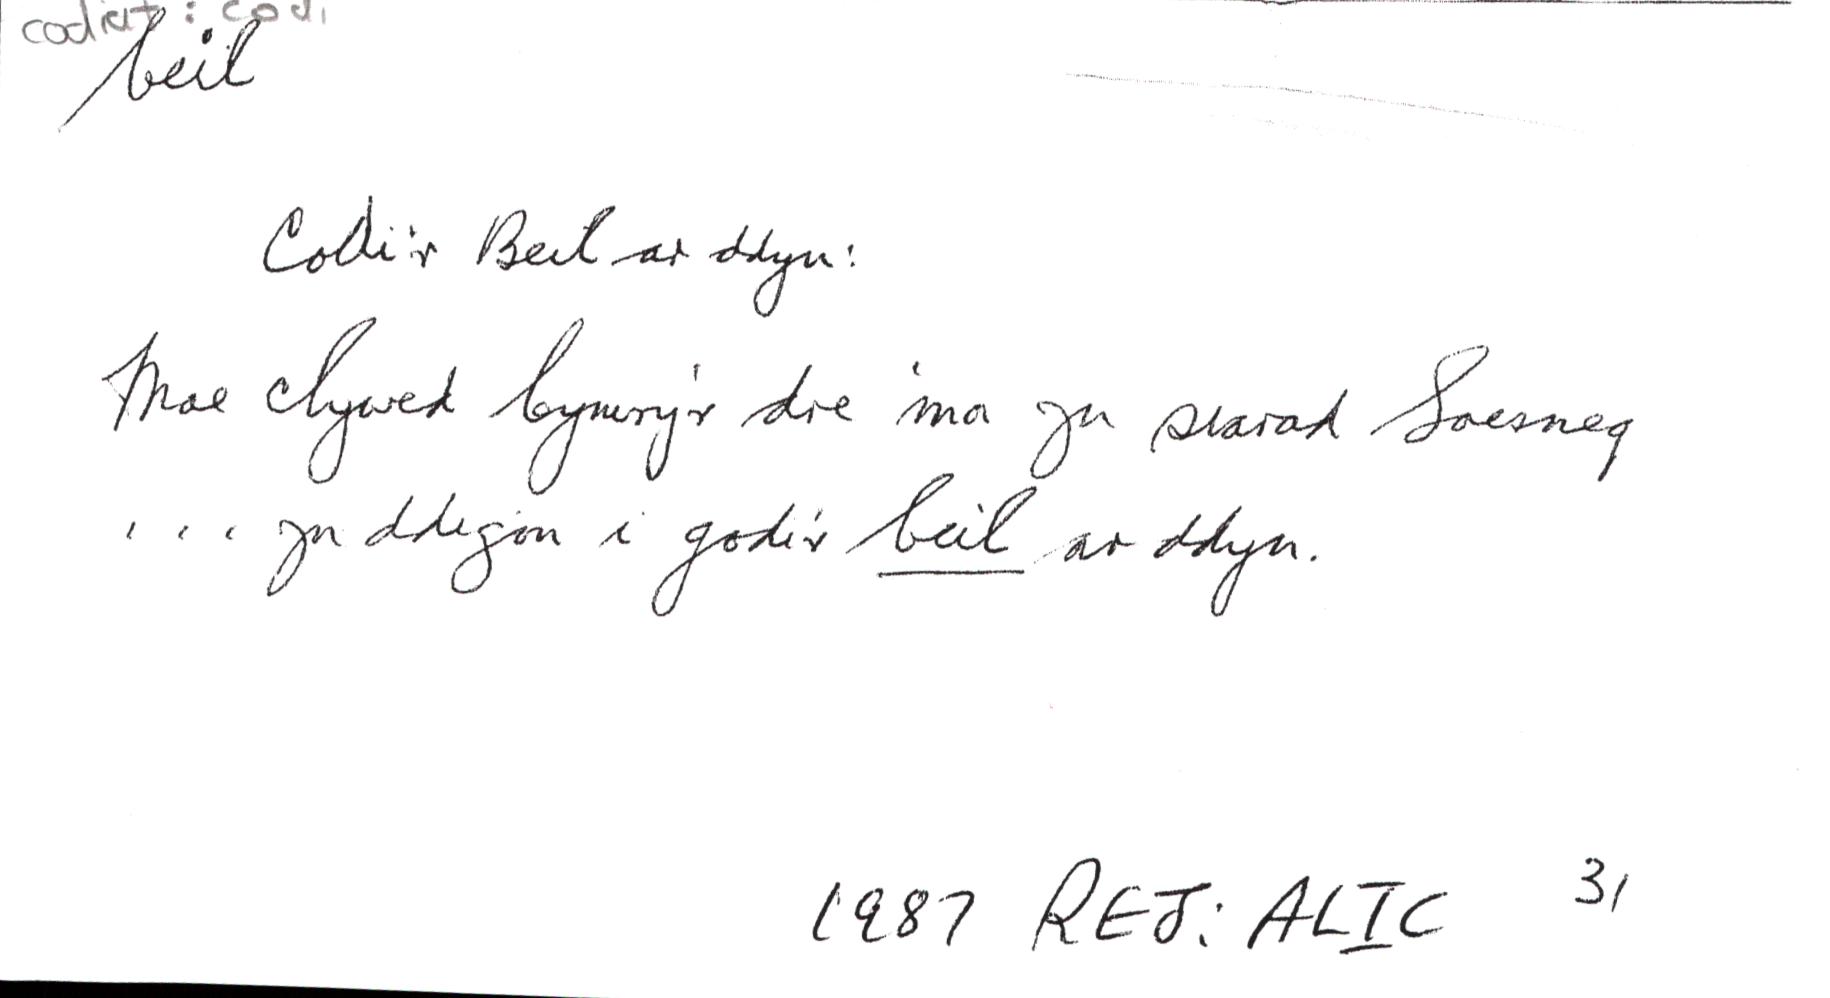 codiat : codi
beil
Codi'r Beil ar ddyn:
Mae clywed Cymry'r dre 'ma yn siarad Saesneg
... yn ddigon i godi'r beil ar ddyn.
1987 REJ: ALIC 31